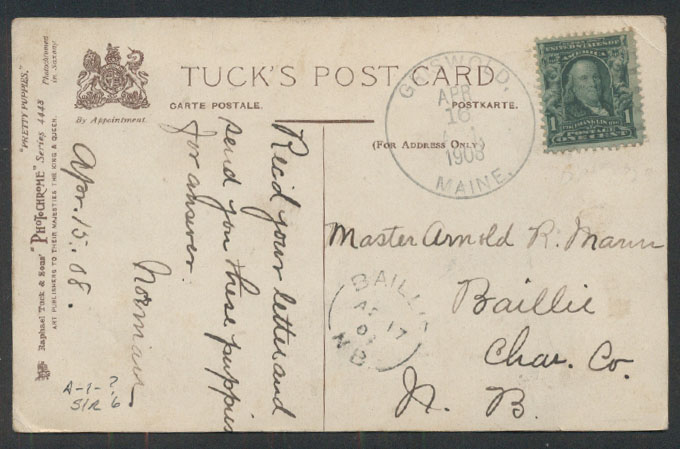 "PRETTY PUPPIES."
Raphael Tuck & Sons' "PHOTOCHROME" Series 4443
ART PUBLISHERS TO THEIR MAJESTIES THE KING & QUEEN.
Photochromed
in Saxony
By Appointment.
TUCK'S POST CARD
CARTE POSTALE.
POSTKARTE.
(FOR ADDRESS ONLY)
GRISWOLD,
APR
16
1908
MAINE.
1
1
Apr. 15. 08.
Rec'd your letter and
send you these puppies
for answer.
Norman
Master Arnold R. Mann
Baillie
Char. Co.
N. B.
BAILLIE
AP 17
08
N.B.
A-1-?
S/R 6